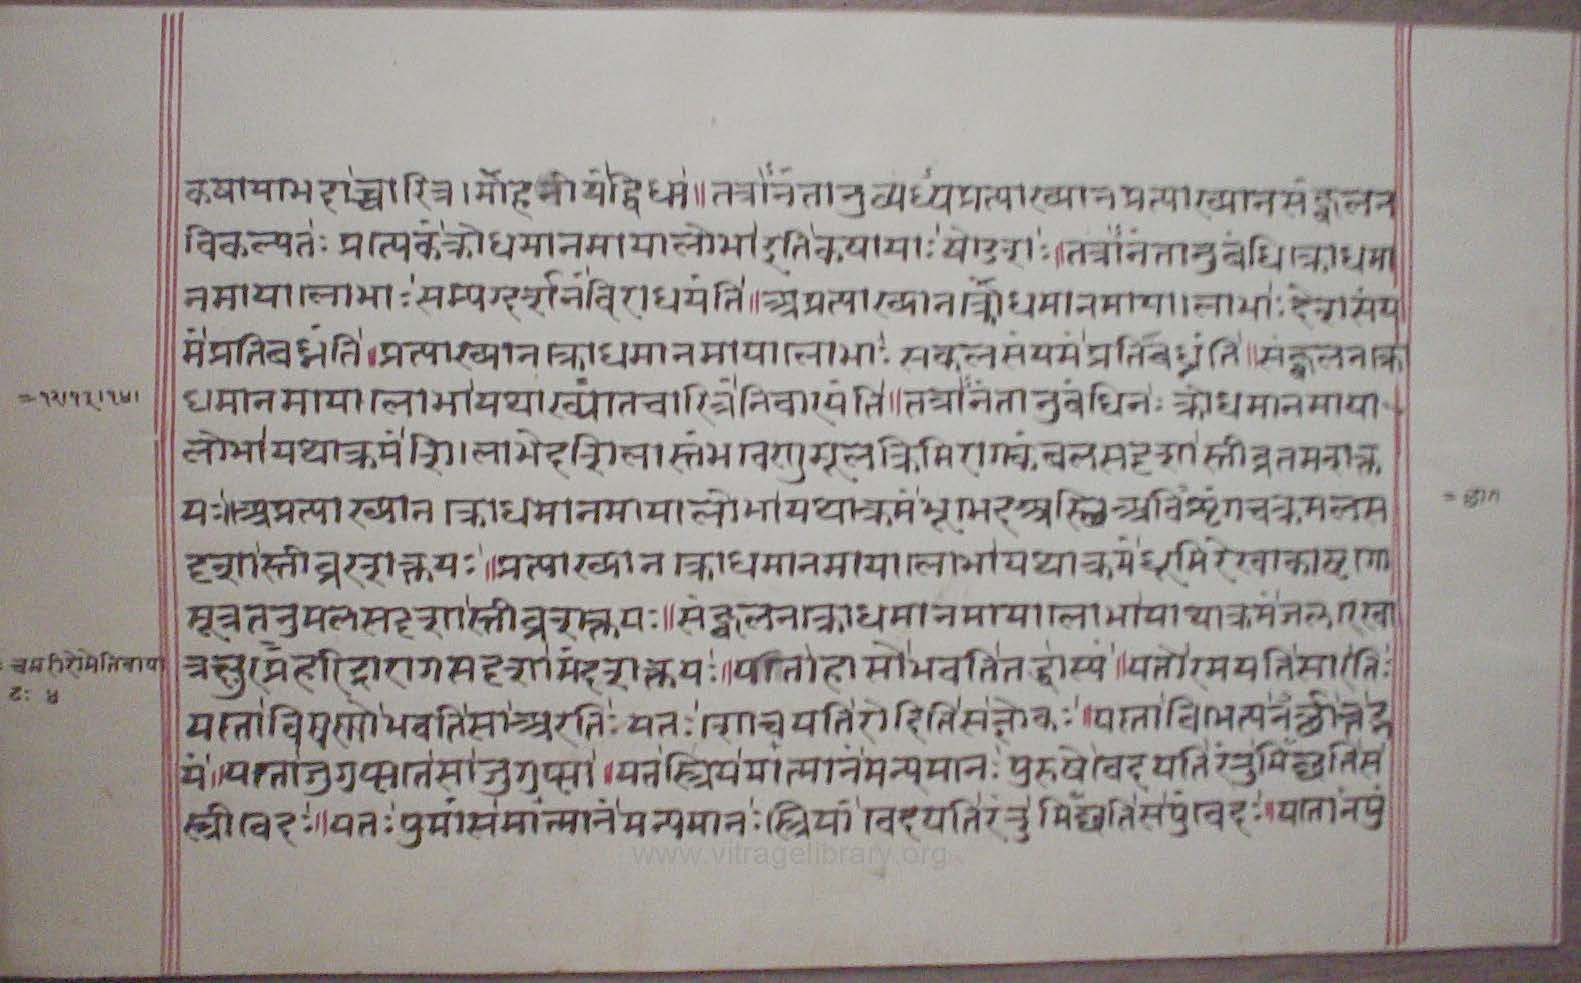 कषायाभेदाच्चारित्रमोहनीयं द्विधा॥ तत्रानंतानुबंध्यप्रत्याख्यानप्रत्याख्यानसंज्वलन
विकल्पतः प्रत्येकं क्रोधमानमायालोभा इति कषायाः षोडशः॥ तत्रानंतानुबंधिक्रोधमा
नमायालोभाः सम्यग्दर्शनं विराधयंति॥ अप्रत्याख्यानक्रोधमानमायालोभाः देशसंय
मं प्रतिबध्नंति॥ प्रत्याख्यानक्रोधमानमायालोभाः सकलसंयमं प्रतिबध्नंति॥ संज्वलनक्रो
धमानमायालोभा यथाख्यातचारित्रं निवारयंति॥ तत्रानंतानुबंधिनः क्रोधमानमाया
लोभा यथाक्रमं शिलाभेदशिलास्तंभवेणुमूलक्रिमिरागकंबलसदृशास्तीव्रतमशक्त
यः॥ अप्रत्याख्यानक्रोधमानमायालोभा यथाक्रमं भूभेद अस्थि अविशृंगचक्रमलस
दृशास्तीव्रतरशक्तयः॥ प्रत्याख्यानक्रोधमानमायालोभा यथाक्रमं धूमिरेखाकाष्ठगो
मूत्रतनुमलसदृशास्तीव्रशक्तयः॥ संज्वलनक्रोधमानमायालोभा यथाक्रमं जलरेखा
हरिद्रारागसदृशा मंदशक्तयः॥ यतो हासो भवति तद्धास्यं॥ यतो रमयति सा रतिः
यतो विषण्णो भवति सा अरतिः यतः शोचयति रोदिति स शोकः॥ यतो बिभेत्यनर्थात्तद्भ
यं॥ यतो जुगुप्सा सा जुगुप्सा॥ यतः स्त्रियमात्मानं मन्यमानः पुरुषे वेदयति रंतुमिच्छति स
स्त्रीवेदः॥ यतः पुमांसमात्मानं मन्यमानः स्त्रियां वेदयति रंतुमिच्छति स पुंवेदः॥ यतो नपुं
www.vitragelibrary.org